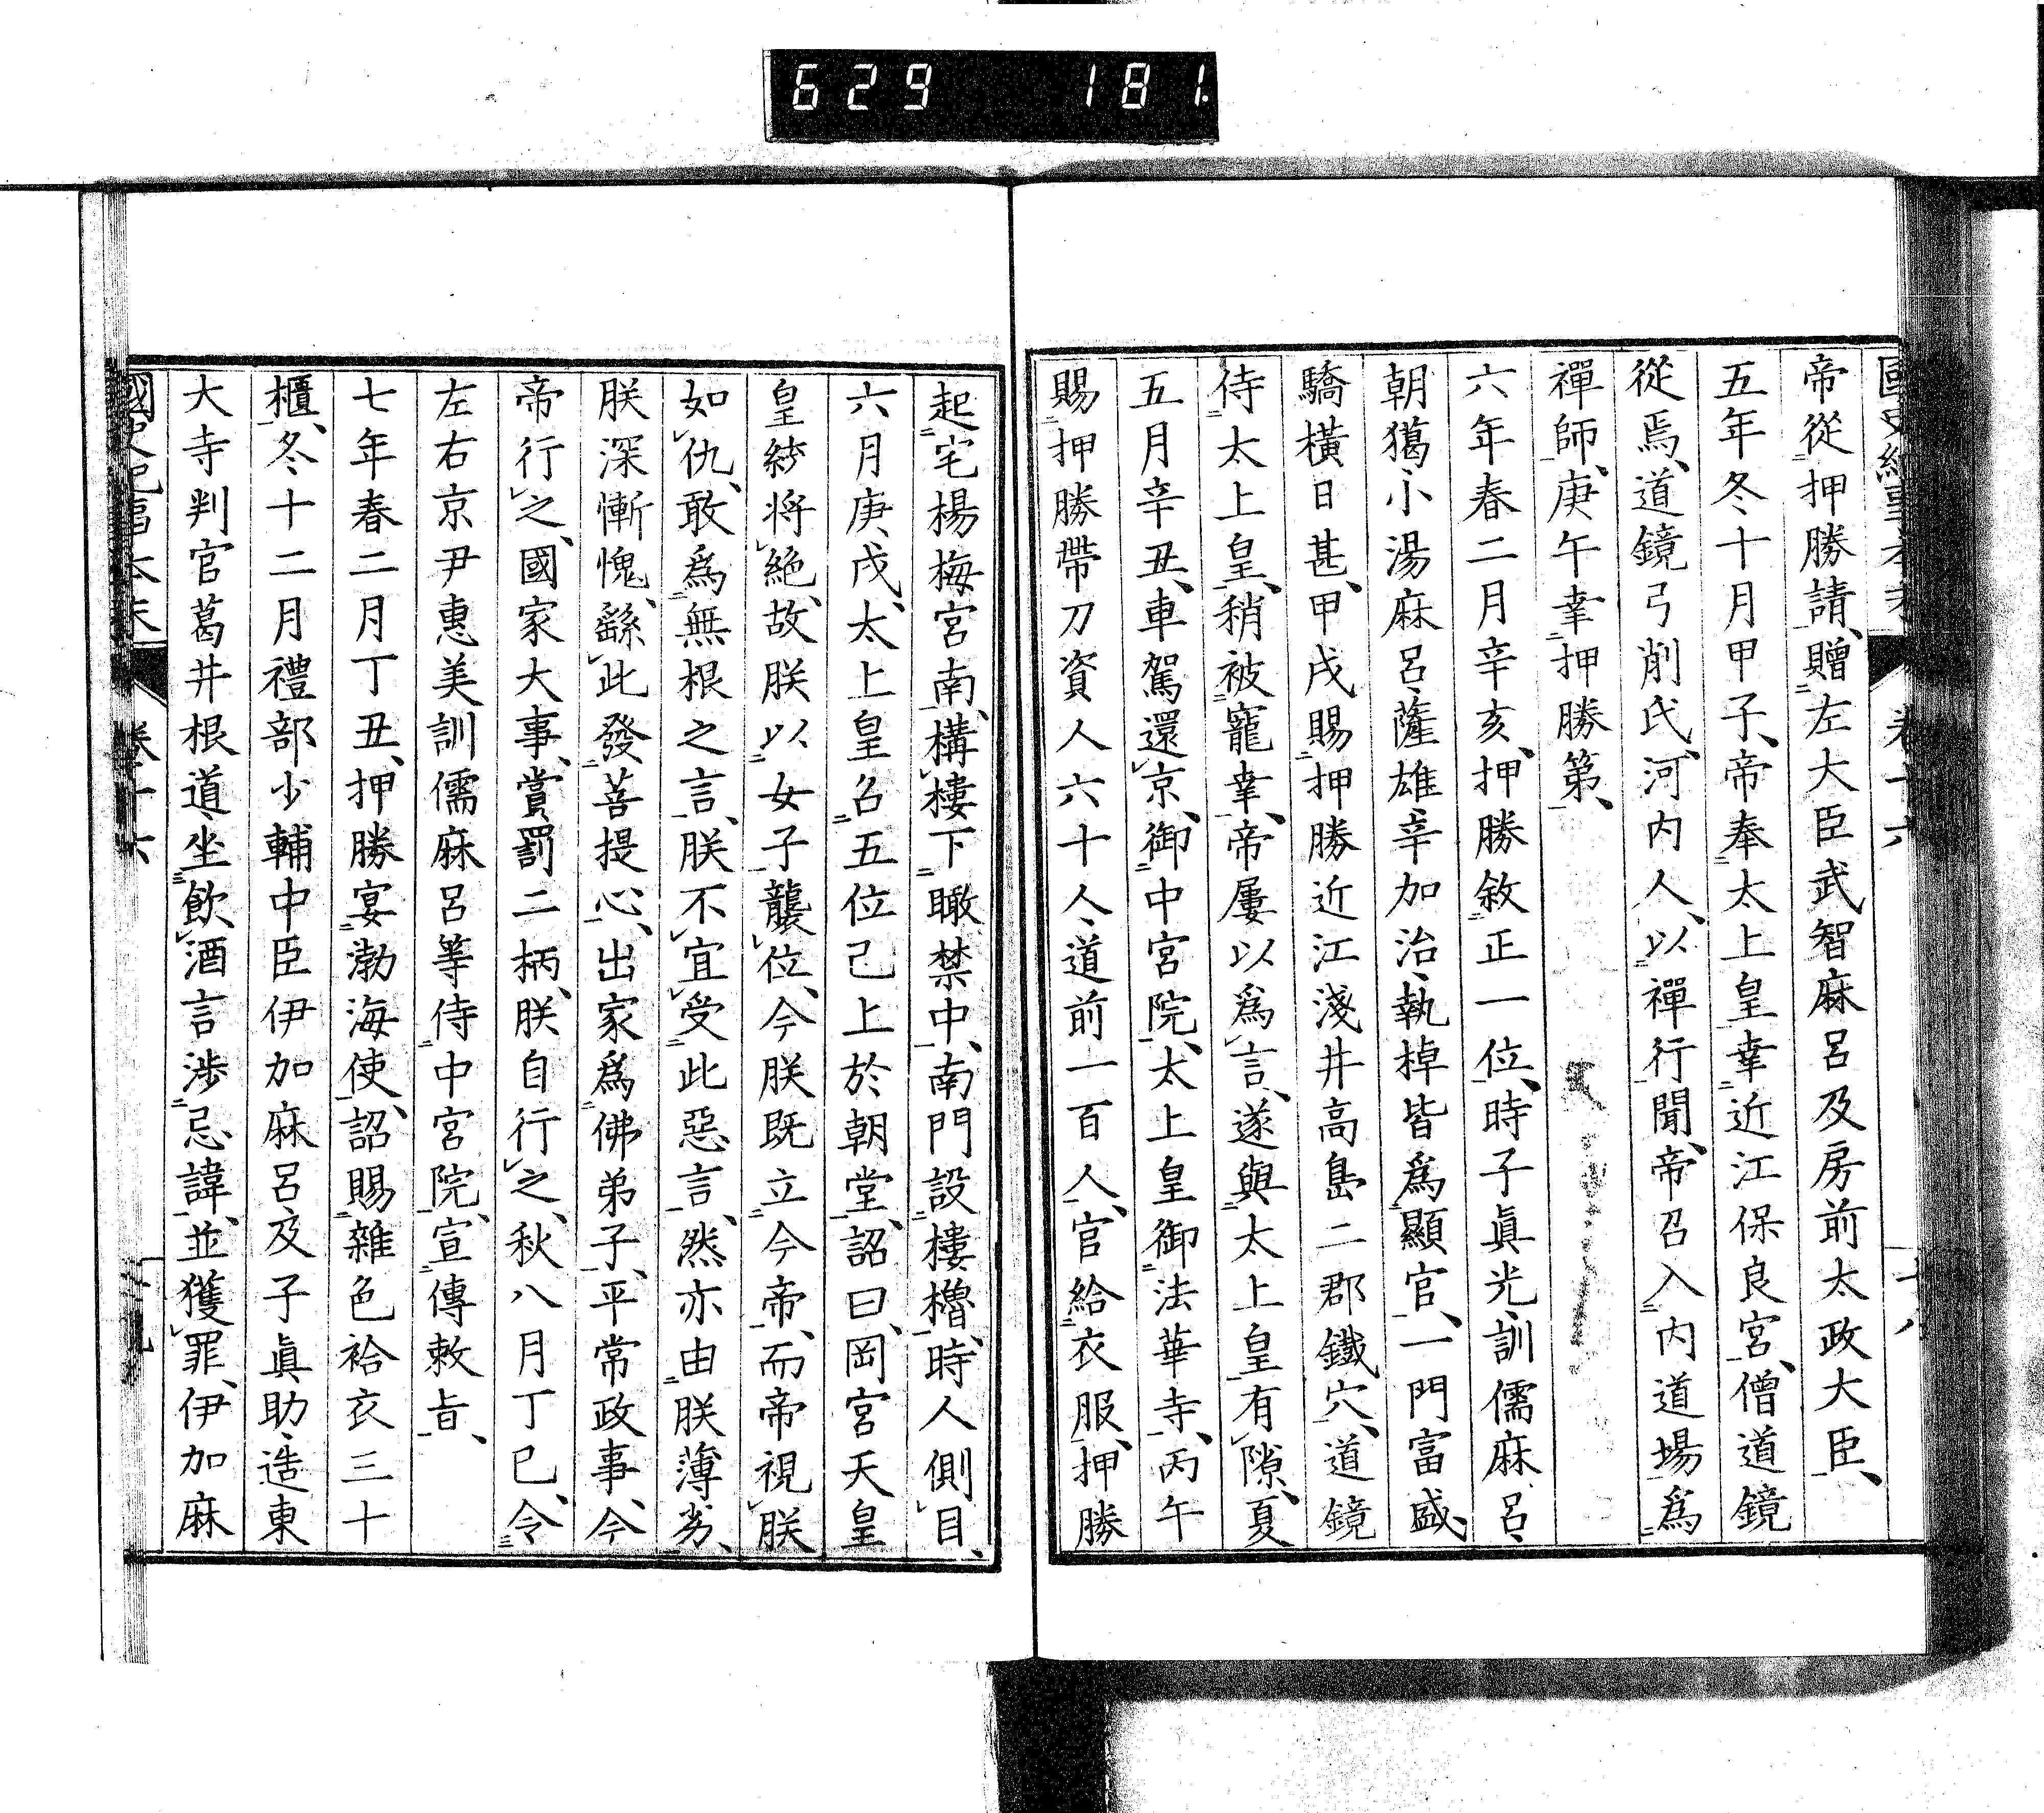 629 181.
國史紀事本末 卷十六 十八
帝從押勝請、贈左大臣武智麻呂及房前太政大臣、
五年冬十月甲子、帝奉太上皇幸近江保良宮、僧道鏡
從焉、道鏡弓削氏、河內人、以禪行聞、帝召入內道場爲
禪師、庚午幸押勝第、
六年春二月辛亥、押勝敘正一位、時子眞光、訓儒麻呂、
朝獦、小湯麻呂、薩雄、辛加治、執棹皆爲顯官、一門富盛、
驕橫日甚、甲戌賜押勝近江淺井高島二郡鐵穴、道鏡
侍太上皇、稍被寵幸、帝屢以爲言、遂與太上皇有隙、夏
五月辛丑、車駕還京、御中宮院、太上皇御法華寺、丙午
賜押勝帶刀資人六十人、道前一百人、官給衣服、押勝
起宅楊梅宮南、構樓下瞰禁中、南門設樓櫓、時人側目、
六月庚戌、太上皇召五位己上於朝堂、詔曰、岡宮天皇
皇紗將絕、故朕以女子襲位、今朕既立今帝、而帝視朕
如仇、敢爲無根之言、朕不宜受此惡言、然亦由朕薄劣、
朕深慚愧、繇此發菩提心、出家爲佛弟子、平常政事、今
帝行之、國家大事、賞罰二柄、朕自行之、秋八月丁巳、令
左右京尹惠美訓儒麻呂等侍中宮院、宣傳敕旨、
七年春二月丁丑、押勝宴渤海使、詔賜雜色袷衣三十
櫃、冬十二月禮部少輔中臣伊加麻呂及子眞助、造東
大寺判官葛井根道、坐飲酒言涉忌諱、並獲罪、伊加麻
國史紀事本末 卷十六